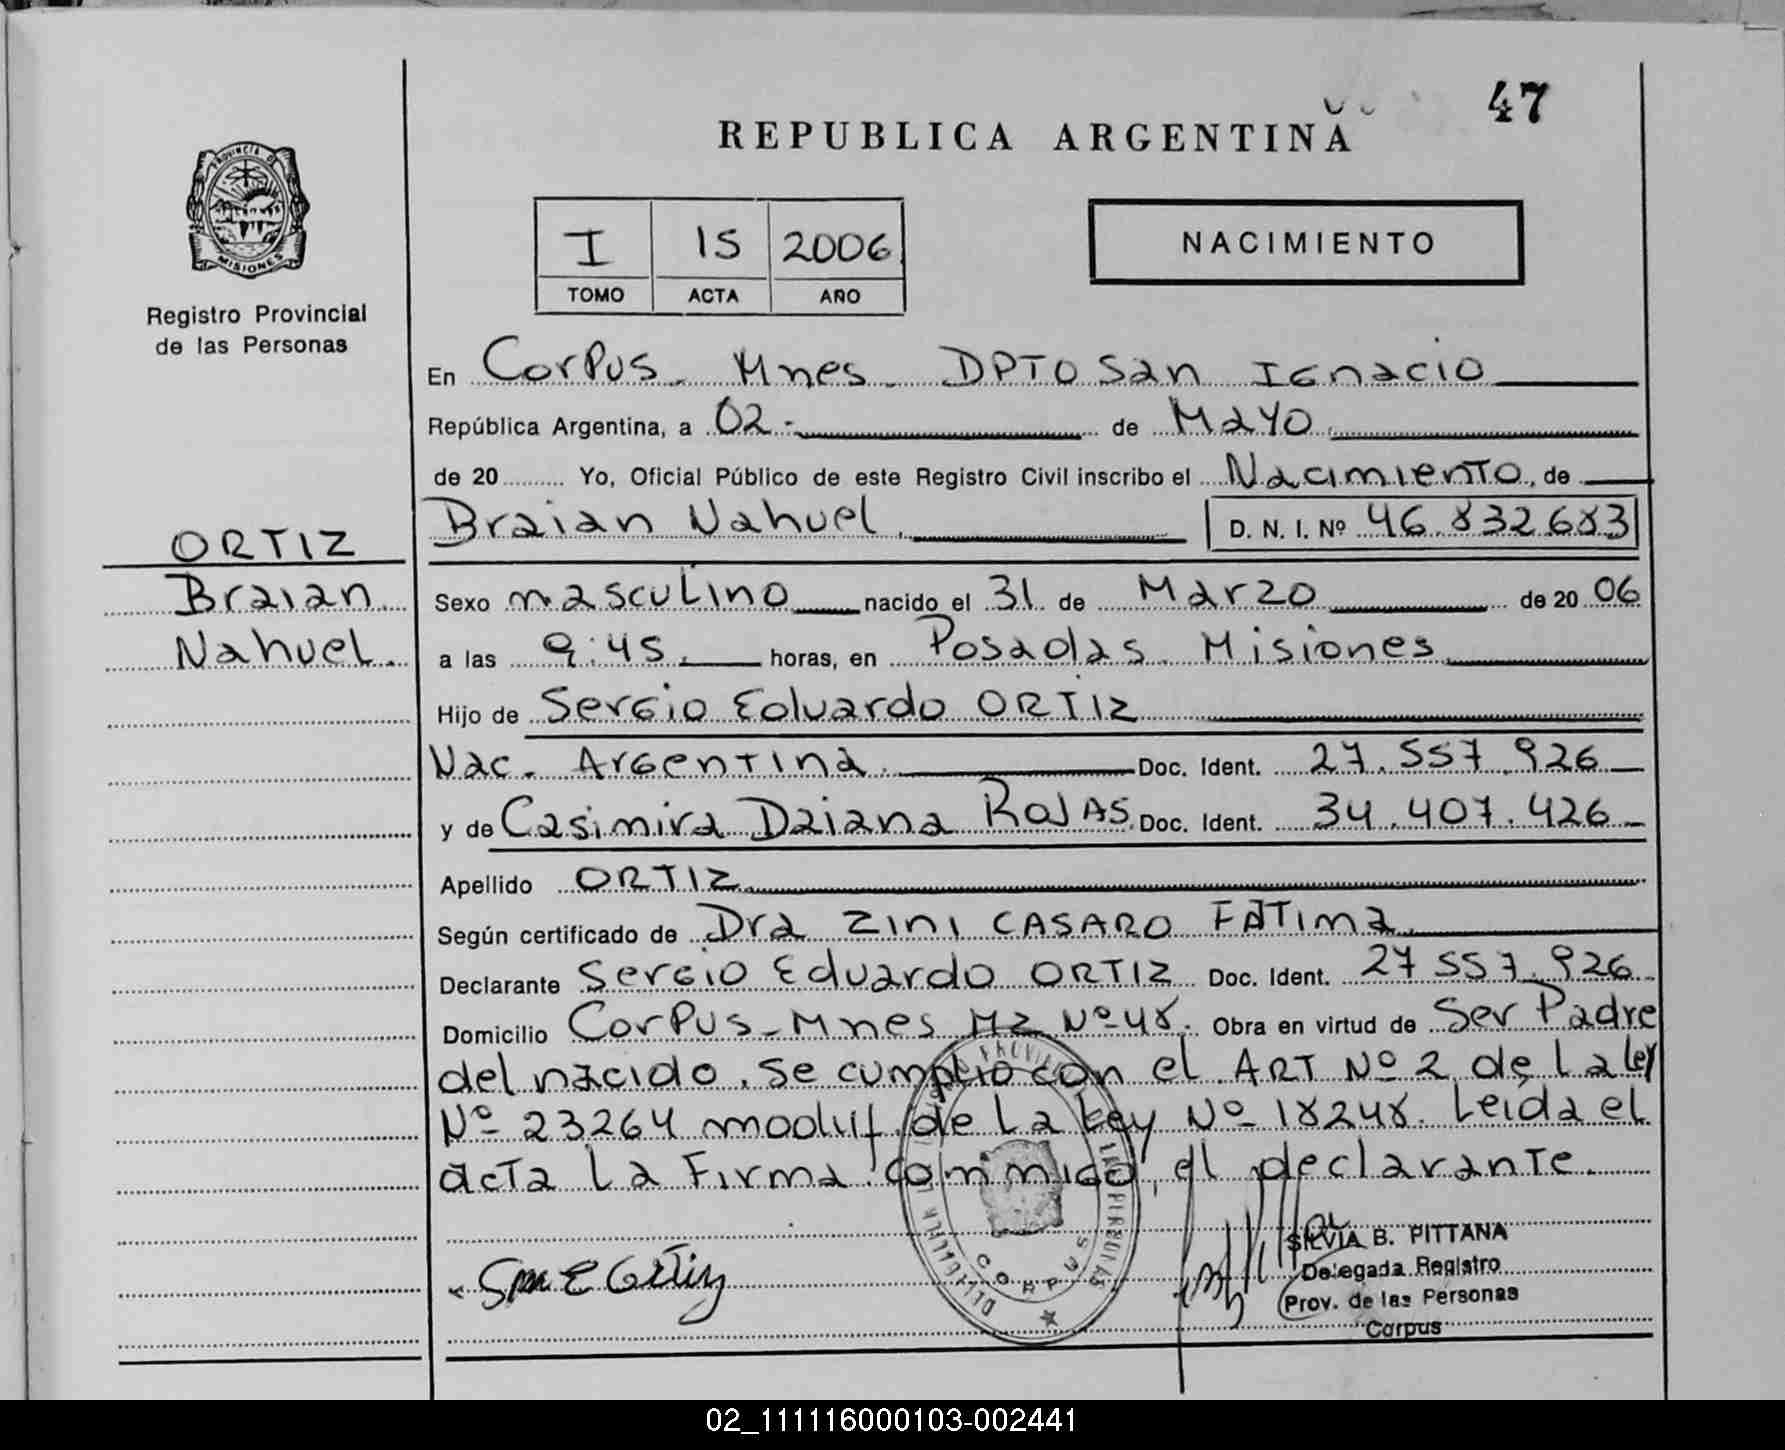 47
REPUBLICA ARGENTINA
PROVINCIA DE
MISIONES
Registro Provincial
de las Personas
I 15 2006
TOMO ACTA AÑO
NACIMIENTO
En Corpus. Mnes. DPTO San Ignacio
República Argentina, a 02.- de Mayo
de 20.......... Yo, Oficial Público de este Registro Civil inscribo el Nacimiento, de
Braian Nahuel. D. N. I. Nº 46.832683
ORTIZ
Braian
Nahuel.
Sexo masculino nacido el 31 de Marzo de 20 06
a las 9:45. horas, en Posadas. Misiones
Hijo de Sergio Eduardo ORTIZ
Nac. Argentina. Doc. Ident. 27.557.926
y de Casimira Daiana ROJAS. Doc. Ident. 34.407.426
Apellido ORTIZ
Según certificado de Dra ZINI CASARO FATIMA.
Declarante Sergio Eduardo ORTIZ Doc. Ident. 27 557.926
Domicilio Corpus-Mnes Mz Nº 48. Obra en virtud de Ser Padre
del nacido. Se cumplio con el ART Nº 2 de la ley
Nº 23264 modif. de la Ley Nº 18248. Leida el
acta la Firma commigo, el declarante.
CORPUS
SILVIA B. PITTANA
Delegada Registro
Prov. de las Personas
Corpus
02_111116000103-002441